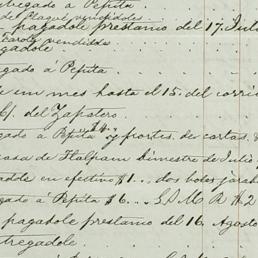 tregado á Pepita
del plaqué vendidoles
pagadole prestamo del 17. Julio
Farol, vendidas
gadole
gado á Pepita
e un mes hasta el 15. del corrie
del Zapatero.
gado á Pepita y portes. de cartas.
casa de Tlalpam bimestre de Julio
adole en efectivo $1... dos botes jarabe
gado á Pepita $6...
pagadole prestamo del 16. Agosto
tregadole